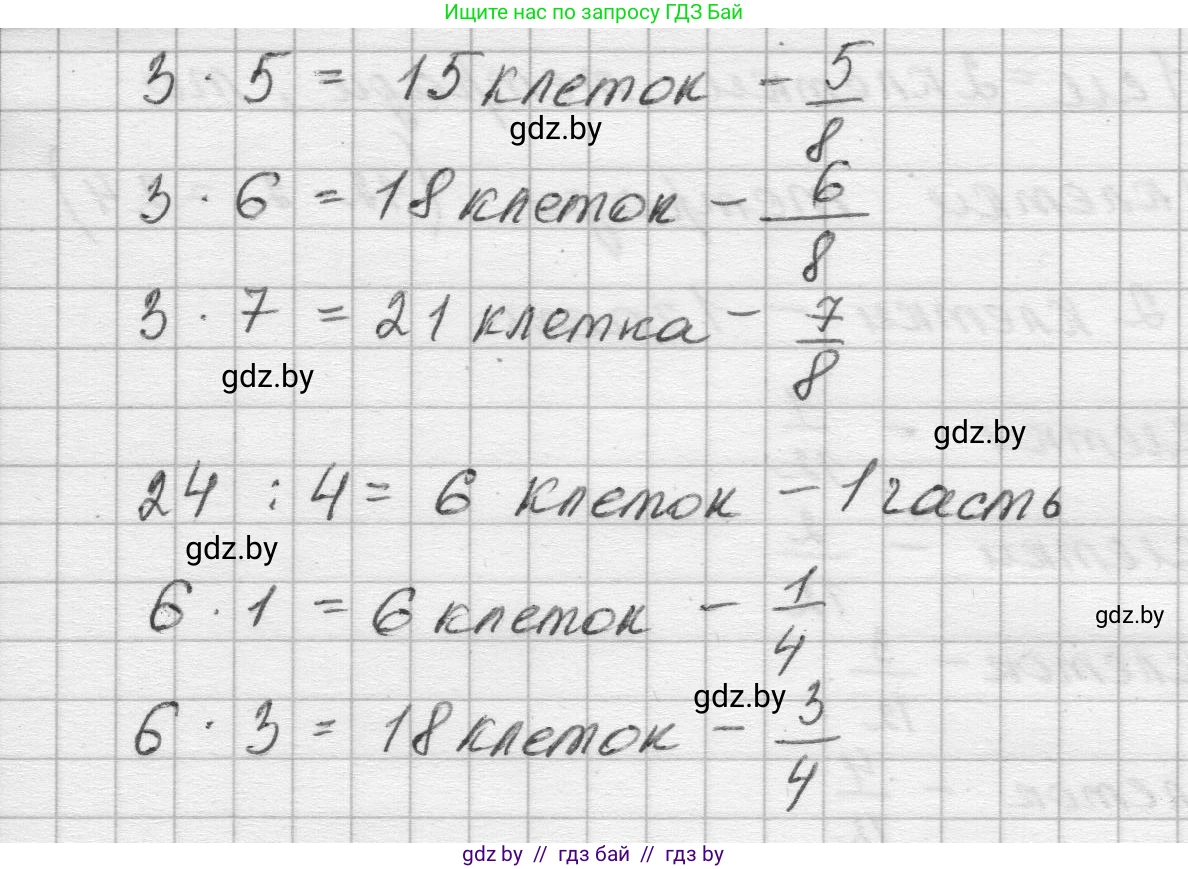 Ищите нас по запросу ГДЗ Бай
3 · 5 = 15 клеток - 5/8
gdz.by
3 · 6 = 18 клеток - 6/8
3 · 7 = 21 клетка - 7/8
gdz.by
gdz.by
24 : 4 = 6 клеток - 1 часть
gdz.by
6 · 1 = 6 клеток - 1/4
gdz.by
gdz.by
6 · 3 = 18 клеток - 3/4
gdz.by // гдз бай // гдз by